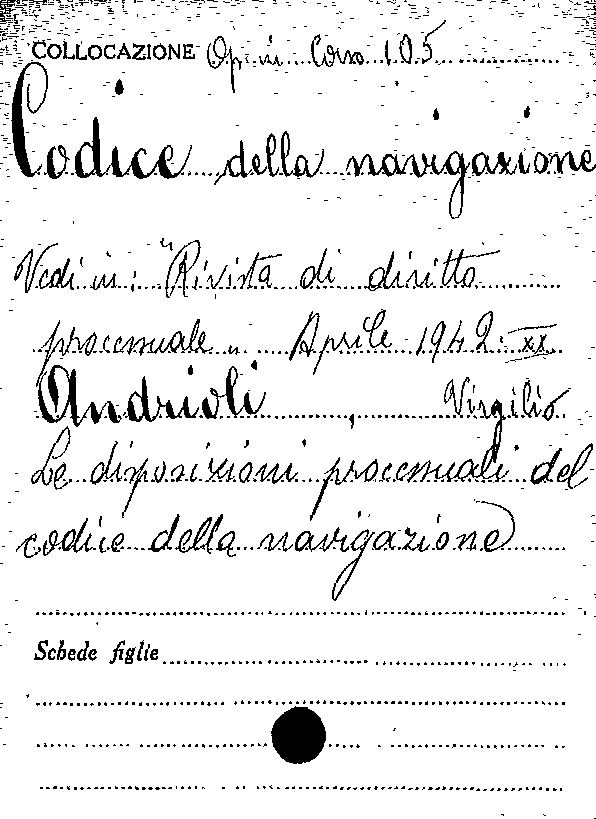 COLLOCAZIONE Op. in Corso 105
Codice della navigazione
Vedi in: "Rivista di diritto
processuale" Aprile 1942. XX
Andrioli, Virgilio
Le disposizioni processuali del
codice della navigazione
Schede figlie